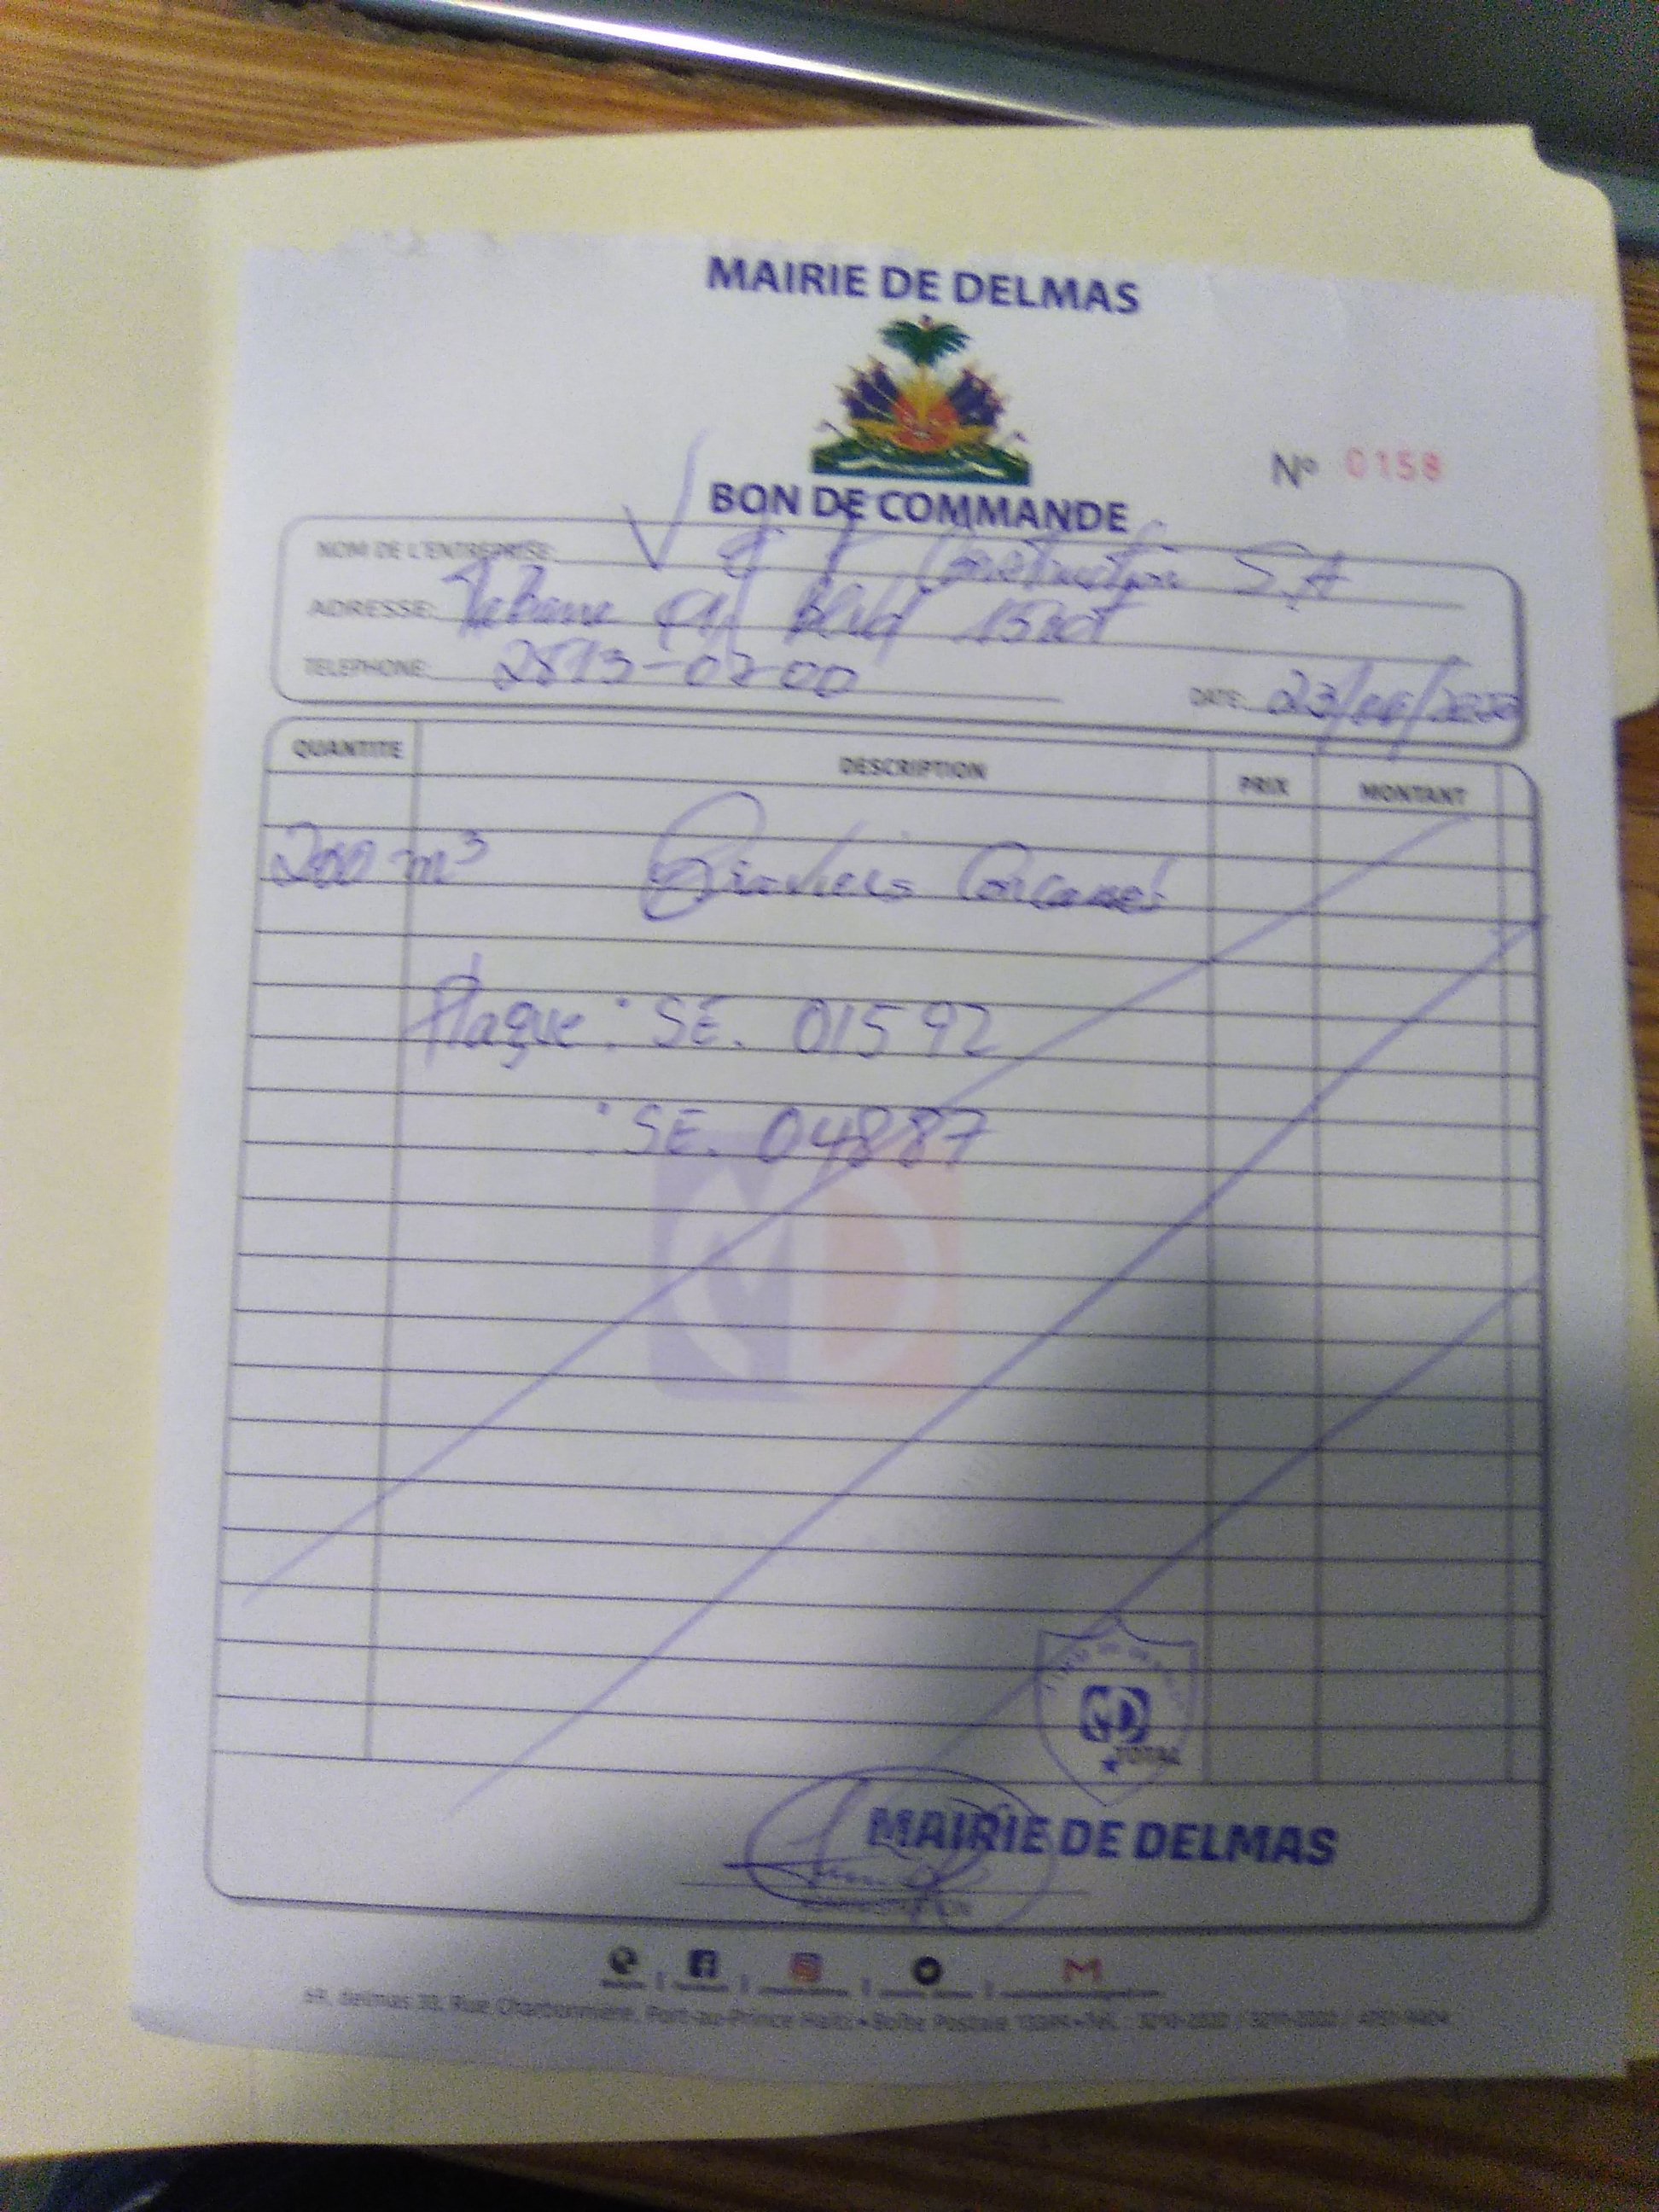 MAIRIE DE DELMAS
Nº 0158
BON DE COMMANDE
NOM DE L'ENTREPRISE: V & F Construction S.A
ADRESSE: Tabarre Blvd 15 oct
TELEPHONE: 2813-0200
DATE: 23/
QUANTITE DESCRIPTION PRIX MONTANT
200 m³ Graviers Concassé
Plaque: SE. 01592
: SE. 04887
TOTAL
MAIRIE DE DELMAS
ADMINISTRATION
69, delmas 33, Rue Charbonniere, Port-au-Prince Haiti • Boîte Postale Tél.: